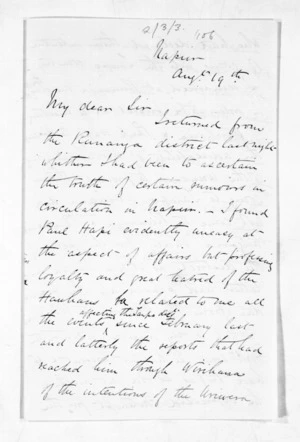 2/3/3. 106
Napier
Augt 19th
My dear Sir
I returned from
the Runanga district last night
whither I had been to ascertain
the truth of certain rumours in
circulation in Napier. - I found
Paul Hapi evidently uneasy at
the aspect of affairs but professing
loyalty and great hatred of the
Hauhaus he related to me all
affecting the Taupo dist
the events since February last
and latterly the reports that had
reached him through Wirihana
of the intentions of the Urewera